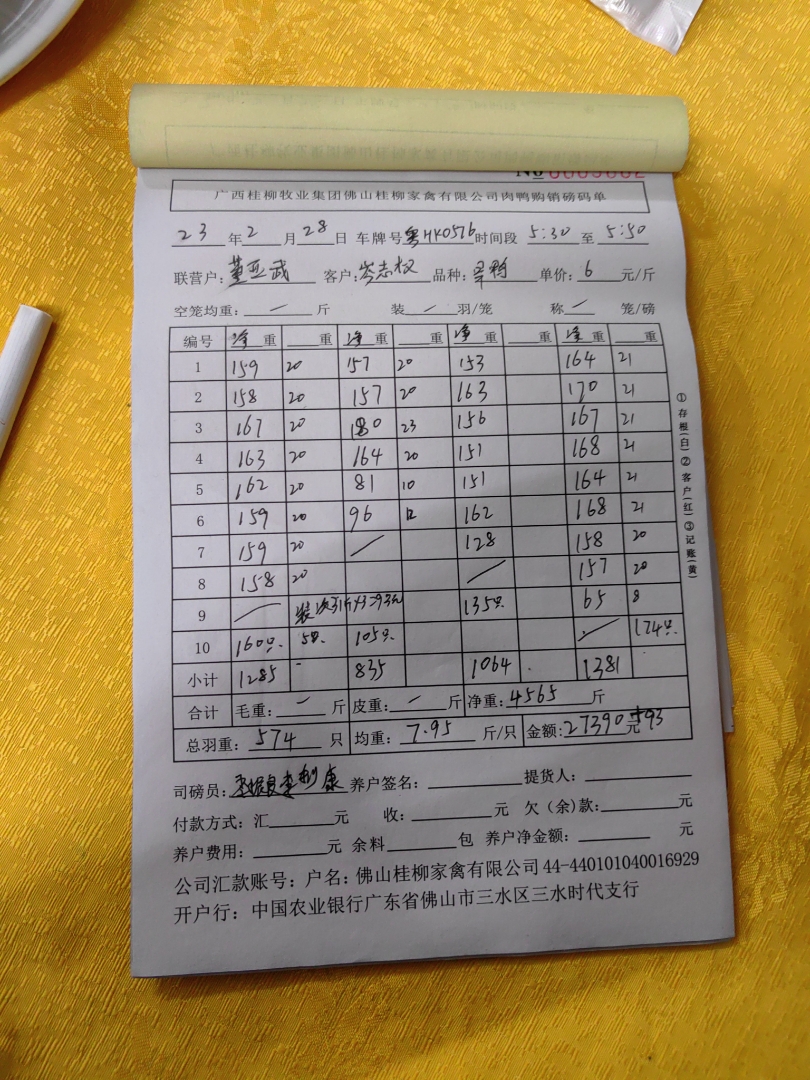 No 0003602
广西桂柳牧业集团佛山桂柳家禽有限公司肉鸭购销磅码单
23年2月28日 车牌号粤HK0576时间段 5:30 至 5:50
联营户:董亚武 客户:岑志权 品种: 单价:6 元/斤
空笼均重: — 斤 装 — 羽/笼 称 — 笼/磅
编号 净重 重 净重 重 净重 重 净重 重
1 159 20 157 20 153 164 21
2 158 20 157 20 163 170 21
3 167 20 180 23 156 167 21
4 163 20 164 20 151 168 21
5 162 20 81 10 151 164 21
6 159 20 96 12 162 168 21
7 159 20 / 128 158 20
8 158 20 / 157 20
9 / 135只. 65 8
10 160只. 5只. 105只. / 174只.
小计 1285 - 835 1064 . 1381
合计 毛重: — 斤 皮重: — 斤 净重:4565 斤
总羽重:574 只 均重:7.95 斤/只 金额:27390元+93
司磅员: 养户签名: 提货人:
付款方式:汇 元 收: 元 欠(余)款: 元
养户费用: 元 余料 包 养户净金额: 元
公司汇款账号:户名:佛山桂柳家禽有限公司 44-440101040016929
开户行:中国农业银行广东省佛山市三水区三水时代支行
①存根(白)②客户(红)③记账(黄)